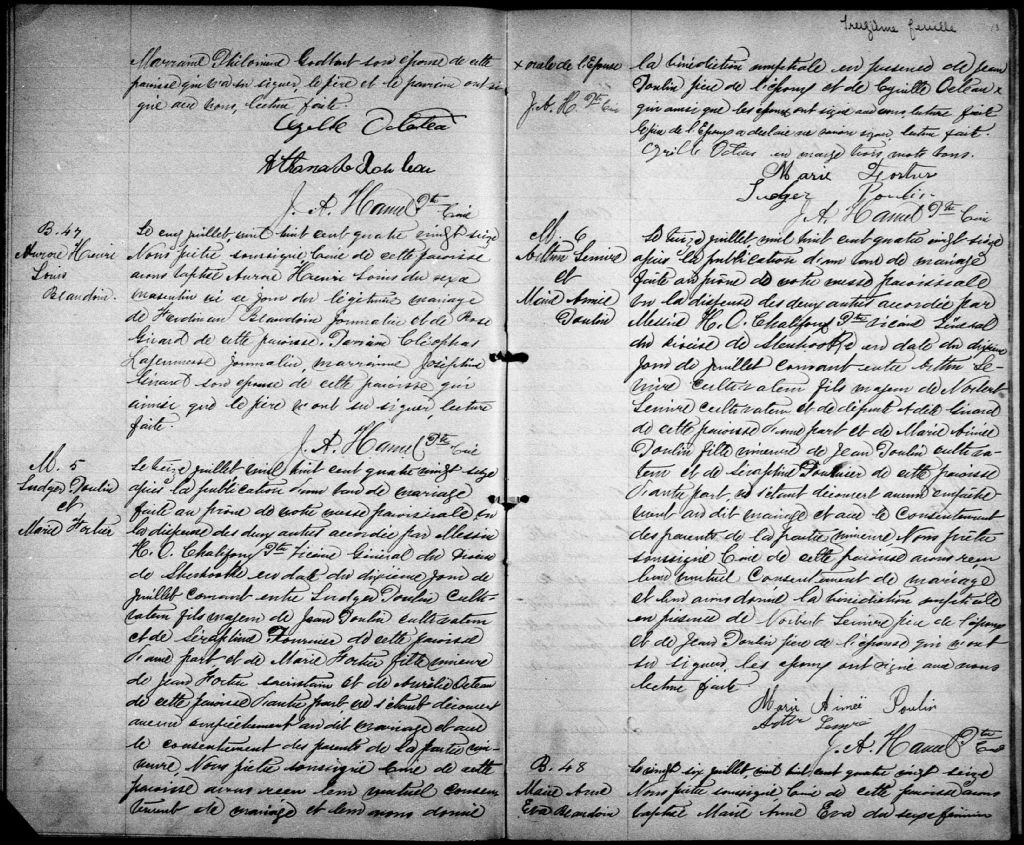 Marraine Philomène Godbout son épouse de cette
paroisse qui a su signer, le père et le parrain ont si-
gné avec nous, lecture faite.
J. A. Hamel Ptre Curé
B. 47
Aurore Henri
Louis
Beaudoin.
juillet, mil huit cent quatre vingt seize
Nous prêtre soussigné Curé de cette paroisse
avons baptisé Aurore Henri Louis du sexe
masculin né ce jour du légitime mariage
de Beaudoin journalier et de Rose
Girard de cette paroisse. Parrain Cléophas
Lafermesse journalier, marraine Joséphine
Girard son épouse de cette paroisse qui
ainsi que le père n'ont su signer lecture
faite.
J. A. Hamel Ptre Curé
M. 5
Ludger Poulin
et
Marie Fortier
Le seize juillet mil huit cent quatre vingt seize
après la publication d'un ban de mariage
faite au prône de notre messe paroissiale vu
la dispense des deux autres accordée par Messire
H. O. Chalifoux Ptre Vicaire Général du Diocèse
de Sherbrooke en date du dixième jour de
juillet courant entre Ludger Poulin culti-
vateur fils majeur de Jean Poulin cultivateur
et de Séraphine Fournier de cette paroisse
d'une part, et de Marie Fortier fille mineure
de Jean Fortier sacristain et de Aurélie Octeau
de cette paroisse d'autre part ne s'étant découvert
aucun empêchement au dit mariage et avec
le consentement des parents de la partie mi-
neure, Nous prêtre soussigné Curé de cette
paroisse avons reçu leur mutuel consen-
tement de mariage et leur avons donné
Treizième feuille
13
x orale de l'Epouse
J. A. H. Ptre Curé
la bénédiction nuptiale en présence de Jean
Poulin père de l'époux et de Cyrille Octeau x
qui ainsi que les époux ont signé avec nous, lecture faite
le père de l'Epoux a déclaré ne savoir signer, lecture faite.
en marge trois mots bons.
Marie Fortier
Ludger Poulin
J. A. Hamel Ptre Curé
M. 6
et
Marie Aimée
Poulin
Le seize juillet, mil huit cent quatre vingt seize
après la publication d'un ban de mariage
faite au prône de notre messe paroissiale
vu la dispense des deux autres accordée par
Messire H. O. Chalifoux Ptre Vicaire Général
du diocèse de Sherbrooke en date du dixième
jour de juillet courant entre
cultivateur fils majeur de Norbert
cultivateur et de défunte Adèle Girard
de cette paroisse d'une part et de Marie Aimée
Poulin fille mineure de Jean Poulin cultiva-
teur et de Séraphine Fournier de cette paroisse
d'autre part, ne s'étant découvert aucun empêche-
ment au dit mariage et avec le consentement
des parents de la partie mineure Nous prêtre
soussigné Curé de cette paroisse avons reçu
leur mutuel consentement de mariage
et leur avons donné la bénédiction nuptiale
en présence de Norbert père de l'époux
et de Jean Poulin père de l'épouse qui n'ont
su signer, les époux ont signé avec nous
lecture faite.
Marie Aimée Poulin
J. A. Hamel Ptre Curé
B. 48
Marie Anne
Eva Beaudoin
Le vingt six juillet, mil huit cent quatre vingt seize
Nous prêtre soussigné Curé de cette paroisse avons
baptisé Marie Anne Eva du sexe féminin